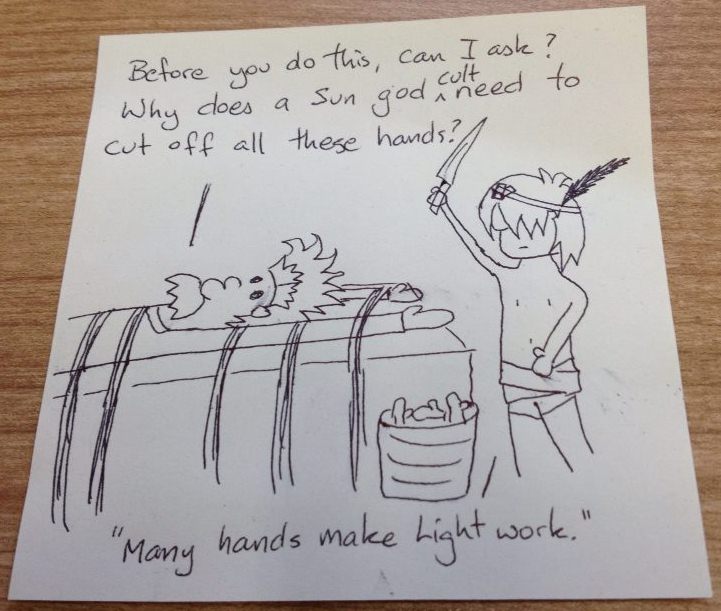 Before you do this, can I ask?
Why does a Sun god cult need to
cut off all these hands?
"Many hands make Light work."